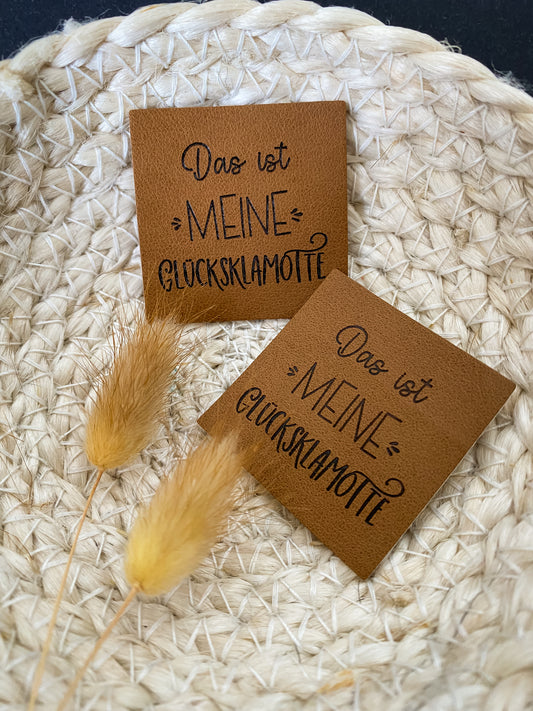 Das ist
MEINE
GLÜCKSKLAMOTTE
Das ist
MEINE
GLÜCKSKLAMOTTE